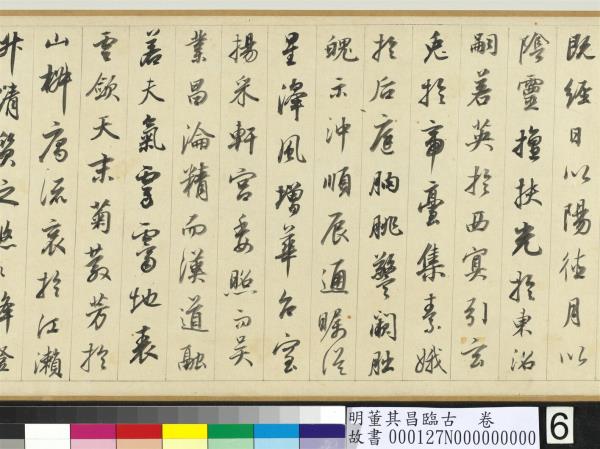 既經日以陽德月以
陰靈擅扶光於東沼
嗣若英於西冥引玄
兔於帝臺集素娥
於后庭朒朓警闕朏
魄示沖順辰通燭從
星澤風增華台室
揚采軒宮委照而吳
業昌淪精而漢道融
若夫氣霽地表
雲斂天末菊散芳於
山椒雁流哀於江瀨
升清質之悠悠降澄
明董其昌臨古 卷
故書 000127N000000000
6